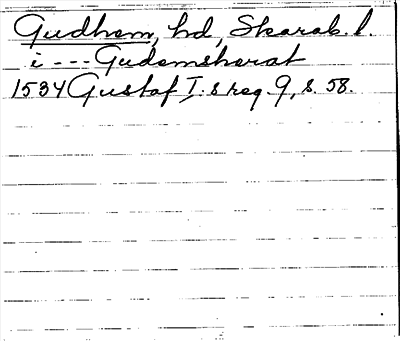 Gudhem, hd, Skarab. l.
i --- Gudemsherat
1534 Gustaf I:s reg. 9, s. 58.